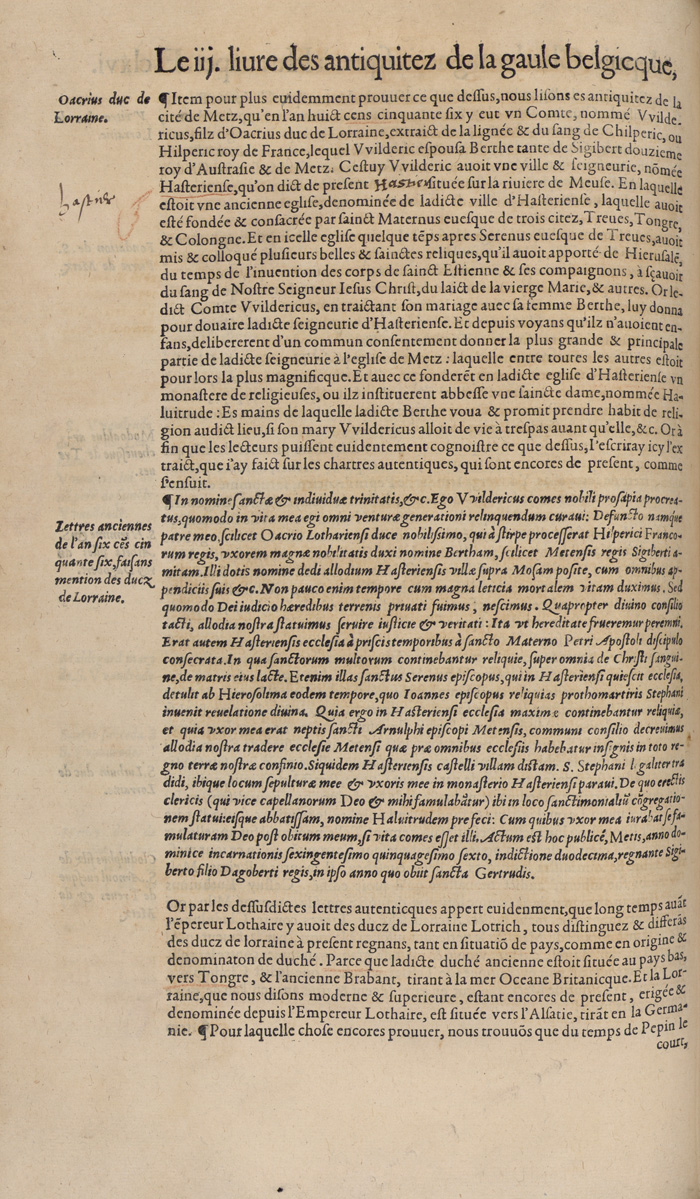 Le iij. liure des antiquitez de la gaule belgicque,
Oacrius duc de
Lorraine.
¶Item pour plus euidemment prouuer ce que dessus, nous lisons es antiquitez de la
cité de Metz, qu'en l'an huict cens cinquante six y eut vn Comte, nommé Vvilde-
ricus, filz d'Oacrius duc de Lorraine, extraict de la lignée & du sang de Chilperic, ou
Hilperic roy de France, lequel Vvilderic espousa Berthe tante de Sigibert douzieme
roy d'Austrasie & de Metz. Cestuy Vvilderic auoit vne ville & seigneurie, nõmée
Hasteriense, qu'on dict de present Hastier située sur la riuiere de Meuse. En laquelle
hastier
estoit vne ancienne eglise, denominée de ladicte ville d'Hasteriense, laquelle auoit
esté fondée & consacrée par sainct Maternus euesque de trois citez, Treues, Tongre,
& Colongne. Et en icelle eglise quelque tẽps apres Serenus euesque de Treues, auoit
mis & colloqué plusieurs belles & sainctes reliques, qu'il auoit apporté de Hierusalẽ,
du temps de l'inuention des corps de sainct Estienne & ses compaignons, à sçauoit
du sang de Nostre Seigneur Iesus Christ, du laict de la vierge Marie, & autres. Or le-
dict Comte Vvildericus, en traictant son mariage auec sa femme Berthe, luy donna
pour douaire ladicte seigneurie d'Hasteriense. Et depuis voyans qu'ilz n'auoient en-
fans, delibererent d'un commun consentement donner la plus grande & principale
partie de ladicte seigneurie à l'eglise de Metz : laquelle entre toutes les autres estoit
pour lors la plus magnificque. Et auec ce fonderẽt en ladicte eglise d'Hasteriense vn
monastere de religieuses, ou ilz instituerent abbesse vne saincte dame, nommée Ha-
luitrude : Es mains de laquelle ladicte Berthe voua & promit prendre habit de reli-
gion audict lieu, si son mary Vvildericus alloit de vie à trespas auant qu'elle, &c. Or à
fin que les lecteurs puissent euidentement cognoistre ce que dessus, I'escriray icy l'ex
traict, que i'ay faict sur les chartres autentiques, qui sont encores de present, comme
s'ensuit.
Lettres anciennes
de l'an six cẽs cin
quante six, faisans
mention des ducz
de Lorraine.
¶In nomine sanctæ & indiuiduæ trinitatis, &c. Ego Vvildericus comes nobili prosapia procrea-
tus, quomodo in vita mea egi omni venturæ generationi relinquendum curaui: Defuncto namque
patre meo, scilicet Oacrio Lothariensi duce nobilissimo, qui à stirpe processerat Hilperici Franco-
rum regis, vxorem magnæ nobilitatis duxi nomine Bertham, scilicet Metensis regis Sigiberti a-
mitam. Illi dotis nomine dedi allodium Hasteriensis villæ supra Mosam posite, cum omnibus ap-
pendiciis suis &c. Non pauco enim tempore cum magna leticia mortalem vitam duximus. Sed
quomodo Dei iudicio hæredibus terrenis priuati fuimus, nescimus. Quapropter diuino consilio
tacti, allodia nostra statuimus seruire iusticie & veritati : Ita vt hereditate frueremur peremni.
Erat autem Hasteriensis ecclesia à priscis temporibus à sancto Materno Petri Apostoli discipulo
consecrata. In qua sanctorum multorum continebantur reliquie, super omnia de Christi sangui-
ne, de matris eius lacte. Etenim illas sanctus Serenus episcopus, qui in Hasteriensi quiescit ecclesia,
detulit ab Hierosolima eodem tempore, quo Ioannes episcopus reliquias prothomartiris Stephani
inuenit reuelatione diuina. Quia ergo in Hasteriensi ecclesia maximæ continebantur reliquiæ,
et quia vxor mea erat neptis sancti Arnulphi episcopi Metensis, communi consilio decreuimus
allodia nostra tradere ecclesie Metensi quæ præ omnibus ecclesiis habebatur insignis in toto re-
gno terræ nostræ confinio. Siquidem Hasteriensis castelli villam dictam. S. Stephani legaliter tra
didi, ibique locum sepulturæ meæ & vxoris mee in monasterio Hasteriensi paraui. De quo erectis
clericis (qui vice capellanorum Deo & mihi famulabãtur) ibi in loco sanctimonialiũ cõgregatio-
nem statui: eisque abbatissam, nomine Haluitrudem prefeci: Cum quibus vxor mea iurabat se fa-
mulaturam Deo post obitum meum, si vita comes esset illi. Actum est hoc publicé, Metis, anno do-
minice incarnationis sexingentesimo quinquagesimo sexto, indictione duodecima, regnante Sigi-
berto filio Dagoberti regis, in ipso anno quo obiit sancta Gertrudis.
Or par les dessusdictes lettres autenticques appert euidenment, que long temps auãt
l'ẽpereur Lothaire y auoit des ducz de Lorraine Lotrich, tous distinguez & differãs
des ducz de lorraine à present regnans, tant en situatiõ de pays, comme en origine &
denominaton de duché. Parce que ladicte duché ancienne estoit située au pays bas,
vers Tongre, & l'ancienne Brabant, tirant à la mer Oceane Britanicque. Et la Lor-
raine, que nous disons moderne & superieure, estant encores de present, erigée &
denominée depuis l'Empereur Lothaire, est située vers l'Alsatie, tirãt en la Germa-
nie. ¶Pour laquelle chose encores prouuer, nous trouuõs que du temps de Pepin le
court,